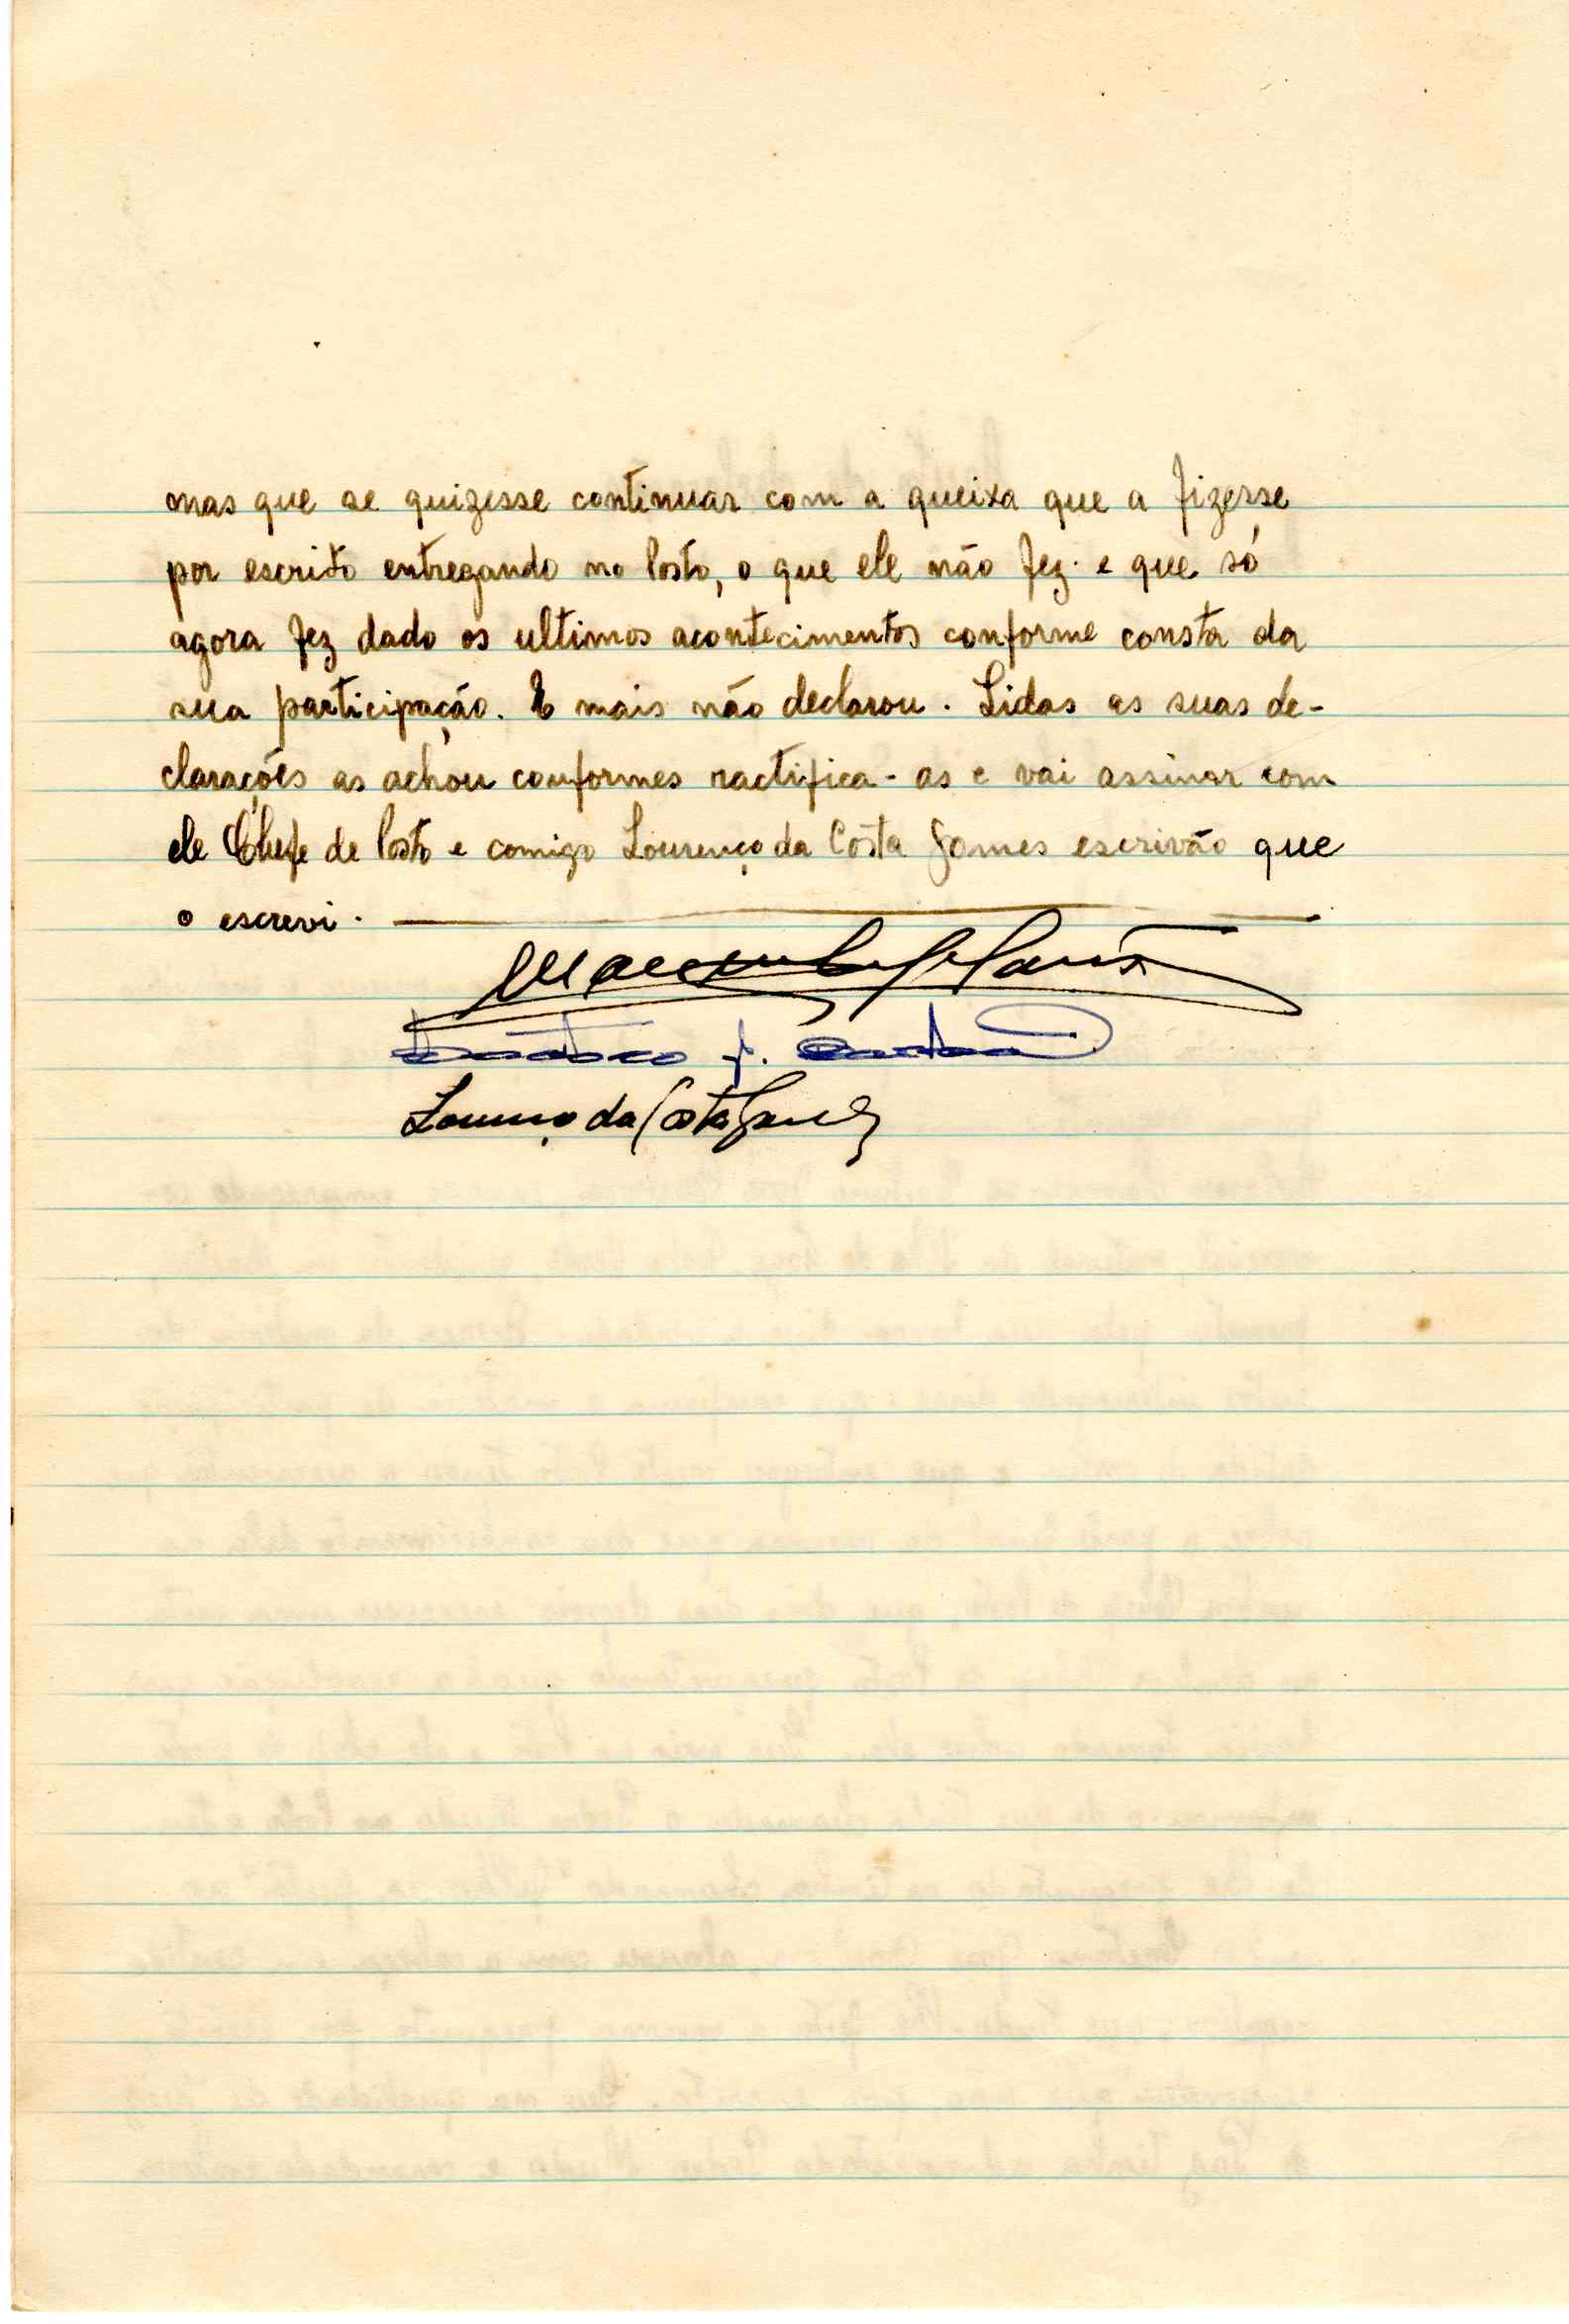 mas que se quizesse continuar com a queixa que a fizesse
por escrito entregando no Posto, o que ele não fez. e que só
agora fez dado os ultimos acontecimentos conforme consta da
sua participação. E mais não declarou. Lidas as suas de-
clarações as achou conformes ractifica-as e vai assinar com
ele Chefe de Posto e comigo Lourenço da Costa Gomes escrivão que
o escrevi.
Lourenço da Costa Gomes